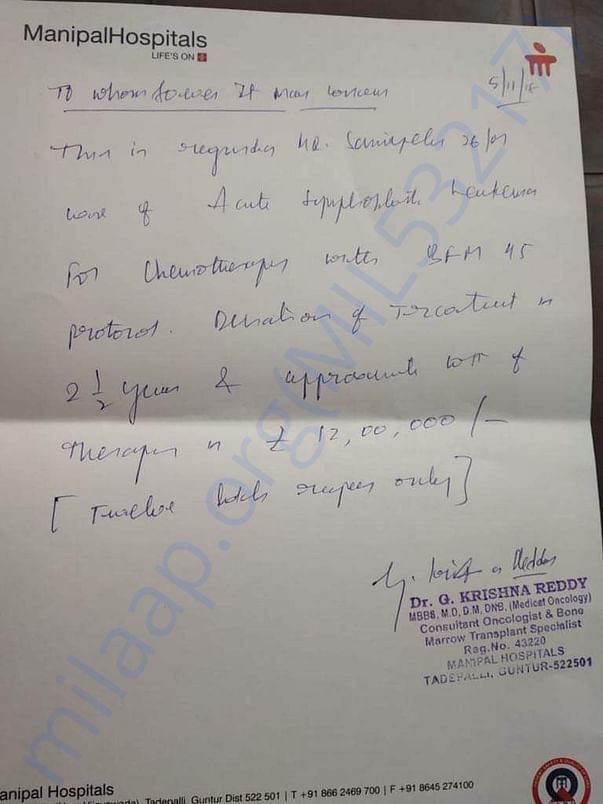 ManipalHospitals
LIFE'S ON
To whomsoever It may concern
5/11/18
This is regarding Mr. 26/M
case of Acute Lymphoblastic Leukemia
For Chemotherapy with BFM 95
protocol. Duration of Treatment is
2 1/2 years & approximate cost of
therapy is ₹ 12,00,000/-
[Twelve lakh rupees only]
Dr. G. KRISHNA REDDY
MBBS, M.D, D.M, DNB, (Medical Oncology)
Consultant Oncologist & Bone
Marrow Transplant Specialist
Reg.No. 43220
MANIPAL HOSPITALS
TADEPALLI, GUNTUR-522501
anipal Hospitals
Tadepalli, Guntur Dist 522 501 | T +91 866 2469 700 | F +91 8645 274100
milaap.org(MHL532177